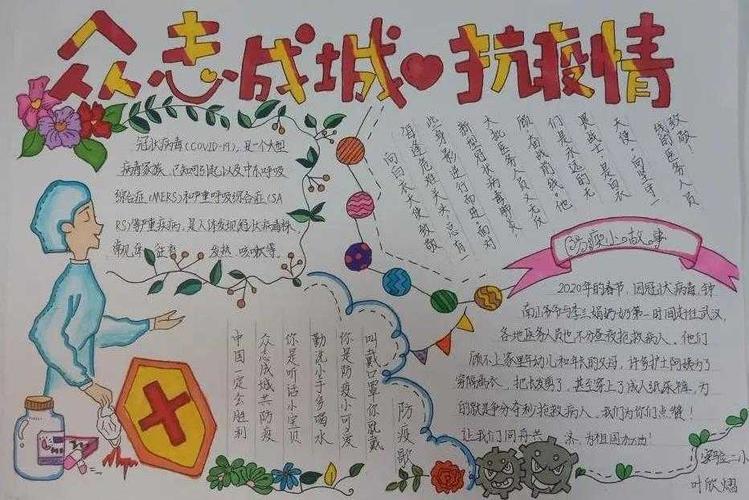 众志成城抗疫情
冠状病毒(COVID-19),是一个大型
病毒家族,已知可引起以及中东呼吸
综合症(MERS)和严重呼吸综合症(SA
RS)等严重疾病,是人体发现冠状病毒株
常见 发热 咳嗽等。
致敬,医务人员
天使,向坚守一
畏战士,是白衣
们是永远的无
顾,奋战前线,他
大批医务人员义无反
新型冠状病毒肺炎
您身影逆行而进,面对
每逢危难关头,总有
向白衣天使致敬
防疫小故事
2020年的春节,因冠状病毒,钟
南山爷爷与李兰娟奶奶第一时间赶往武汉,
各地医务人员也不分昼夜抢救病人,他们
顾不上家里年幼儿和年长的父母,许多护士阿姨为了
穿隔离衣,把长发剪了,甚至穿上了成人纸尿裤,为
的就是争分夺秒抢救病人,我们为你们点赞!
让我们同舟共济,为祖国加油!
防疫歌
叫戴口罩你就戴
你是防疫小可爱
勤洗小手多喝水
你是听话小宝贝
众志成城共防疫
中国一定会胜利
实验二小
叶欣熠